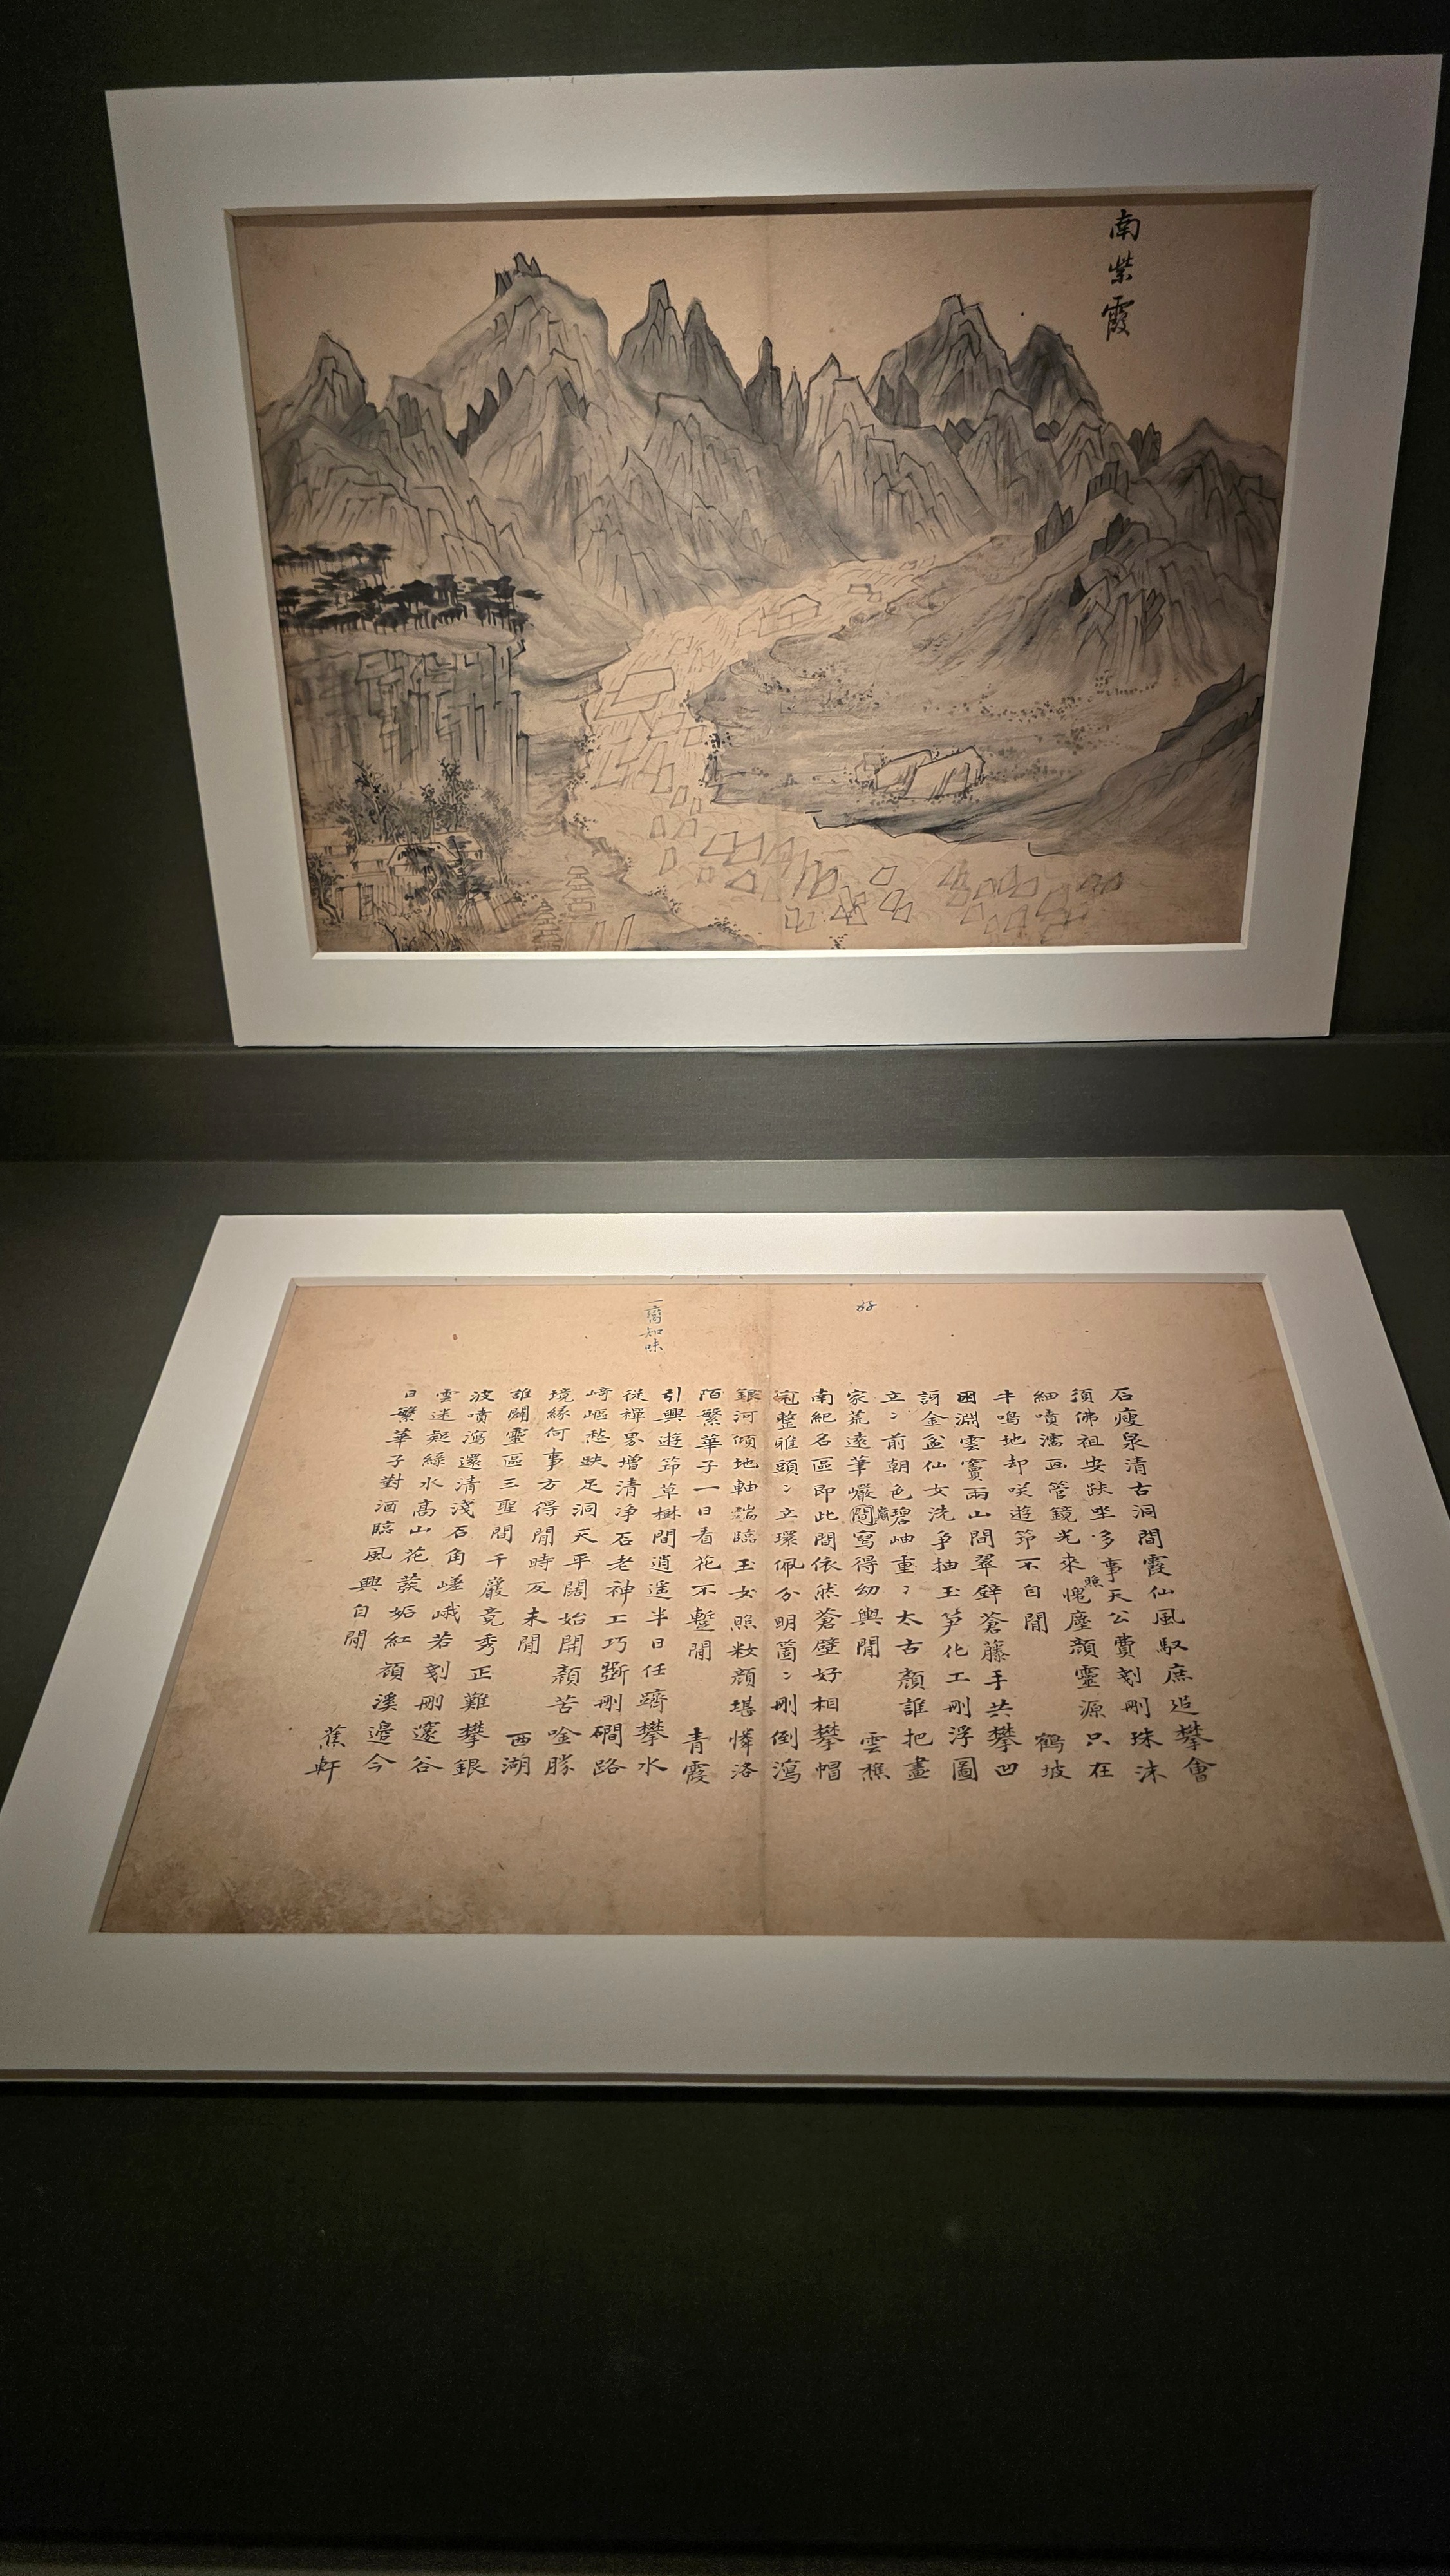 南紫霞
好
一臠知味
石瘦泉清古洞間霞仙風馭庶追攀會
須佛祖安趺坐多事天公費剜刪珠沫
細噴濡画管鏡光來照愧塵顏靈源只在
半鳴地却咲遊笻不自閒 鶴坡
淵雲竇兩山間翠壁蒼藤手共攀凹
訝金盆仙女洗爭抽玉笋化工刪浮圖
立〻前朝色碧岫重〻太古顏誰把畫
家荒遠筆巖間寫得幼輿閒 雲樵
南紀名區即此間依然蒼壁好相攀帽
冠整雅頭〻立環佩分明箇〻刪倒瀉
銀河傾地軸端臨玉女照粧顏堪憐洛
陌繁華子一日看花不蹔閒 青霞
引興遊笻草樹間逍遥半日任躋攀水
從禪界增清净石老神工巧斵刪磵路
崎嶇愁趺足洞天平闊始開顏苦唫勝
境緣何事方得閒時反未閒 西湖
誰闢靈區三聖間千巖竞秀正難攀銀
波噴瀉還清淺石角嵯峨若剜刪邃谷
雲迷絲水高山花蕟妬紅顏溪邊今
日繁華子對酒臨風興自閒 蕉軒